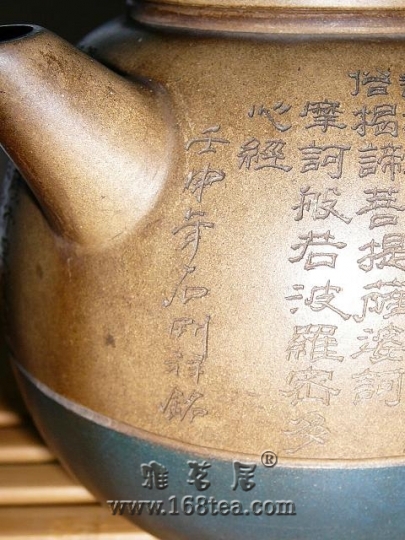 僧揭諦菩提薩婆訶
摩訶般若波羅密多
心經
壬申年石剛祥銘
雅茗居®
www.168tea.com